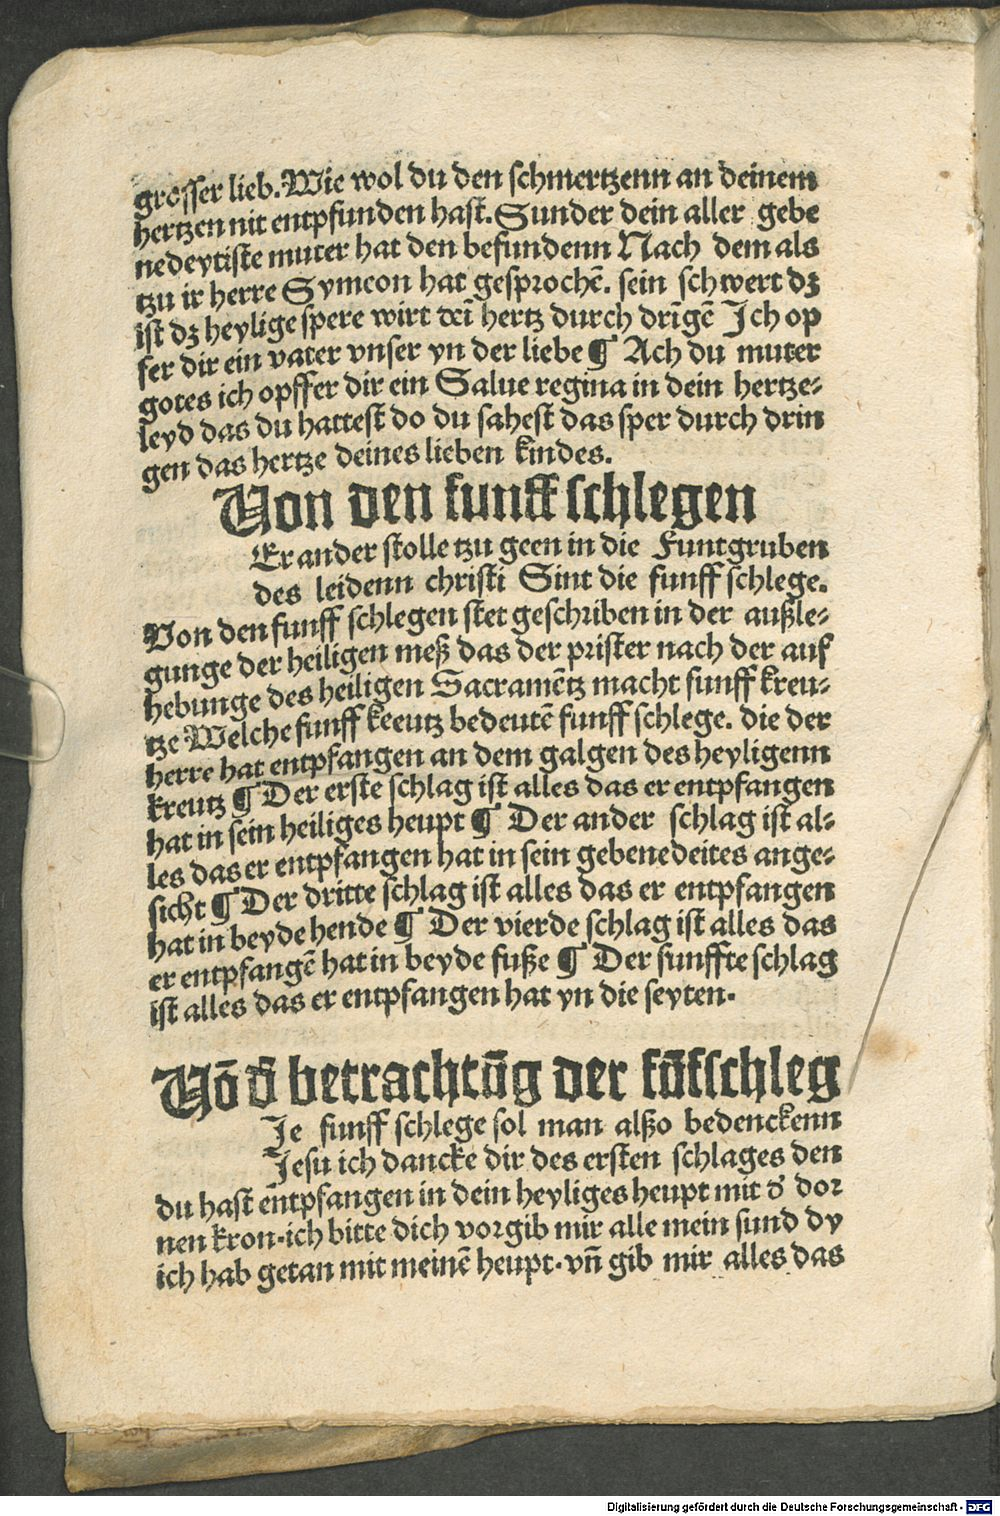 grosser lieb. Wie wol du den schmertzenn an deinem
hertzen nit entpfunden hast. Sunder dein aller gebe
nedeytiste muter hat den befundenn Nach dem als
tzu ir herre Symeon hat gesprochē. sein schwert dz
ist dz heylige spere wirt dei hertz durch drīgē Ich op
fer dir ein vater vnser yn der liebe ¶ Ach du muter
gotes ich opffer dir ein Salue regina in dein hertze⸗
leyd das du hattest do du sahest das sper durch drin
gen das hertze deines lieben kindes.
Von den funff schlegen
Er ander stolle tzu geen in die Funtgruben
des leidenn christi Sint die funff schlege.
Von den funff schlegen stet geschriben in der außle⸗
gunge der heiligen meß das der prister nach der auf
hebunge des heiligen Sacramētz macht funff kreu⸗
tze Welche funff keeutz bedeutē funff schlege. die der
herre hat entpfangen an dem galgen des heyligenn
kreutz ¶ Der erste schlag ist alles das er entpfangen
hat in sein heiliges heupt ¶ Der ander schlag ist al⸗
les das er entpfangen hat in sein gebenedeites ange⸗
sicht ¶ Der dritte schlag ist alles das er entpfangen
hat in beyde hende ¶ Der vierde schlag ist alles das
er entpfangē hat in beyde fuße ¶ Der funffte schlag
ist alles das er entpfangen hat yn die seyten.
Vō d̄ betrachtūg der fūfschleg
Ie funff schlege sol man alßo bedenckenn
Jesu ich dancke dir des ersten schlages den
du hast entpfangen in dein heyliges heupt mit d̄ dor
nen kron. ich bitte dich vorgib mir alle mein sund dy
ich hab getan mit meinē heupt. vn̄ gib mir alles das
Digitalisierung gefördert durch die Deutsche Forschungsgemeinschaft - DFG